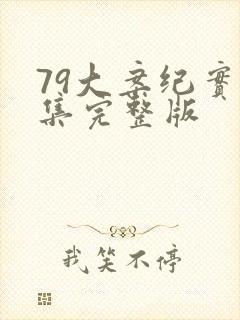 79大案纪实
集完整版
我笑不停